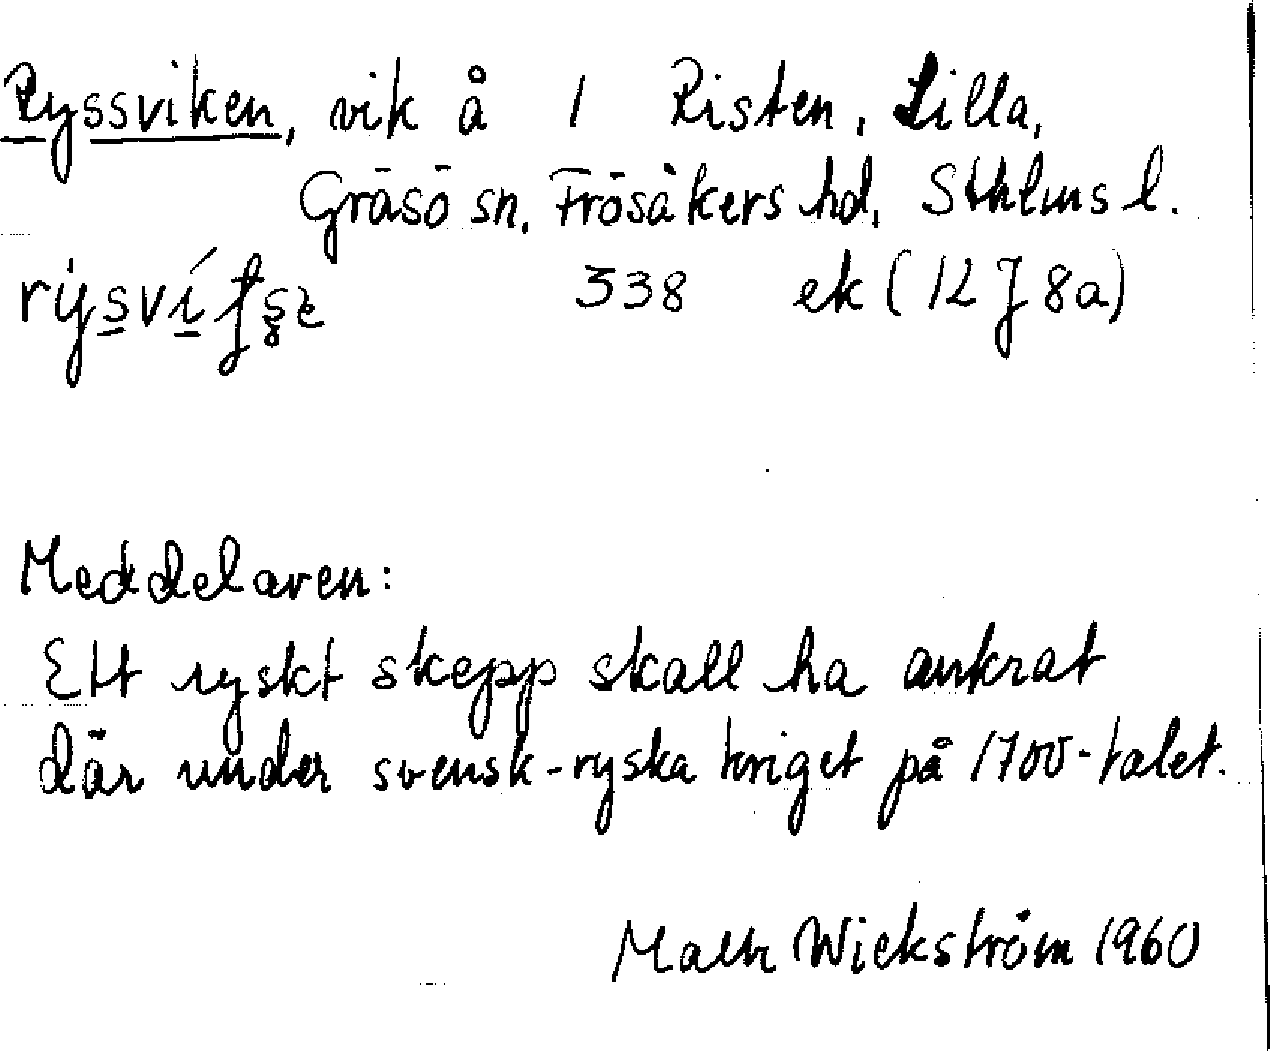 Ryssviken, vik å 1 Risten, Lilla,
Gräsö sn, Frösåkers hd, Sthlms l.
338 ek (12 J 8a)
Meddelaren:
Ett ryskt skepp skall ha ankrat
där under svensk-ryska kriget på 1700-talet.
Wickström 1960